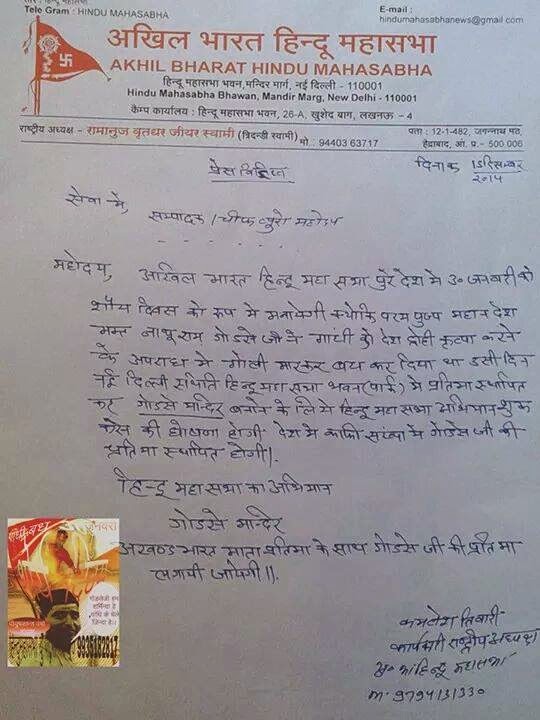 Tele Gram : HINDU MAHASABHA
E-mail :
hindumahasabhanews@gmail.com
अखिल भारत हिन्दू महासभा
AKHIL BHARAT HINDU MAHASABHA
हिन्दू महासभा भवन, मन्दिर मार्ग, नई दिल्ली - 110001
Hindu Mahasabha Bhawan, Mandir Marg, New Delhi - 110001
कैम्प कार्यालय : हिन्दू महासभा भवन, 26-A, खुर्शेद बाग, लखनऊ - 4
राष्ट्रीय अध्यक्ष - रामानुज वृतधर जीयर स्वामी (त्रिदन्डी स्वामी) मो.: 94403 63717
पता : 12-1-482, जगन्नाथ मठ,
हैद्राबाद, ऑ. प्र.- 500 006
प्रेस विज्ञप्ति
दिनांक 15 दिसम्बर
२०१५
सेवा मे,
सम्पादक / चीफ ब्यूरो महोदय
महोदय, अखिल भारत हिन्दू महासभा पुरे देश मे ३० जनवरी को
शौर्य दिवस के रूप मे मनायेगी क्योकि परम पुज्य महान देश
भक्त नाथूराम गोडसे जी ने गांधी को देश द्रोही कृत्य करने
के अपराध मे गोली मारकर वध कर दिया था उसी दिन
नई दिल्ली स्थिति हिन्दू महासभा भवन (पार्क) मे प्रतिमा स्थापित
कर गोडसे मन्दिर बनाने के लिये हिन्दू महासभा अभियान शुरू
करने की घोषणा होगी देश मे काफी संख्या मे गोडसे जी की
प्रतिमा स्थापित होगी।
हिन्दू महासभा का अभियान
गोडसे मन्दिर
अखण्ड भारत माता प्रतिमा के साथ गोडसे जी की प्रतिमा
लगायी जायेगी।।
कमलेश तिवारी
कार्यकारी राष्ट्रीय अध्यक्ष
अ० भा० हिन्दू महासभा
मो. 9794131330
गाँधी वध
जनवरी
9936182817